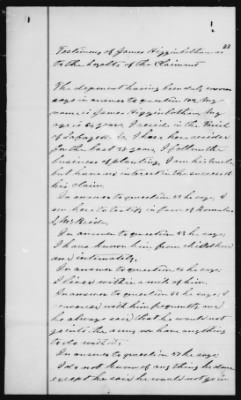 23
Testimony of James Higginbotham as
to the loyalty of the Claimant
The deponent having been duly sworn
says in answer to question 1st My
name is James Higginbotham My
age is years, I reside in the Parish
of La. I have here resided
for the last years, I follow the
business of planting, I am his uncle
but have no interest in the success of
his claim.
In answer to question he says, I
am here to testify in favor of
In answer to question he says
I have known him from childhood
and intimately.
In answer to question he says
I lived within a mile of him.
In answer to question he says, I
conversed with him frequently and
he always said that he would not
go into the army or have anything
to do with it.
In answer to question he says
I do not know of any thing he done
except he said he would not go in